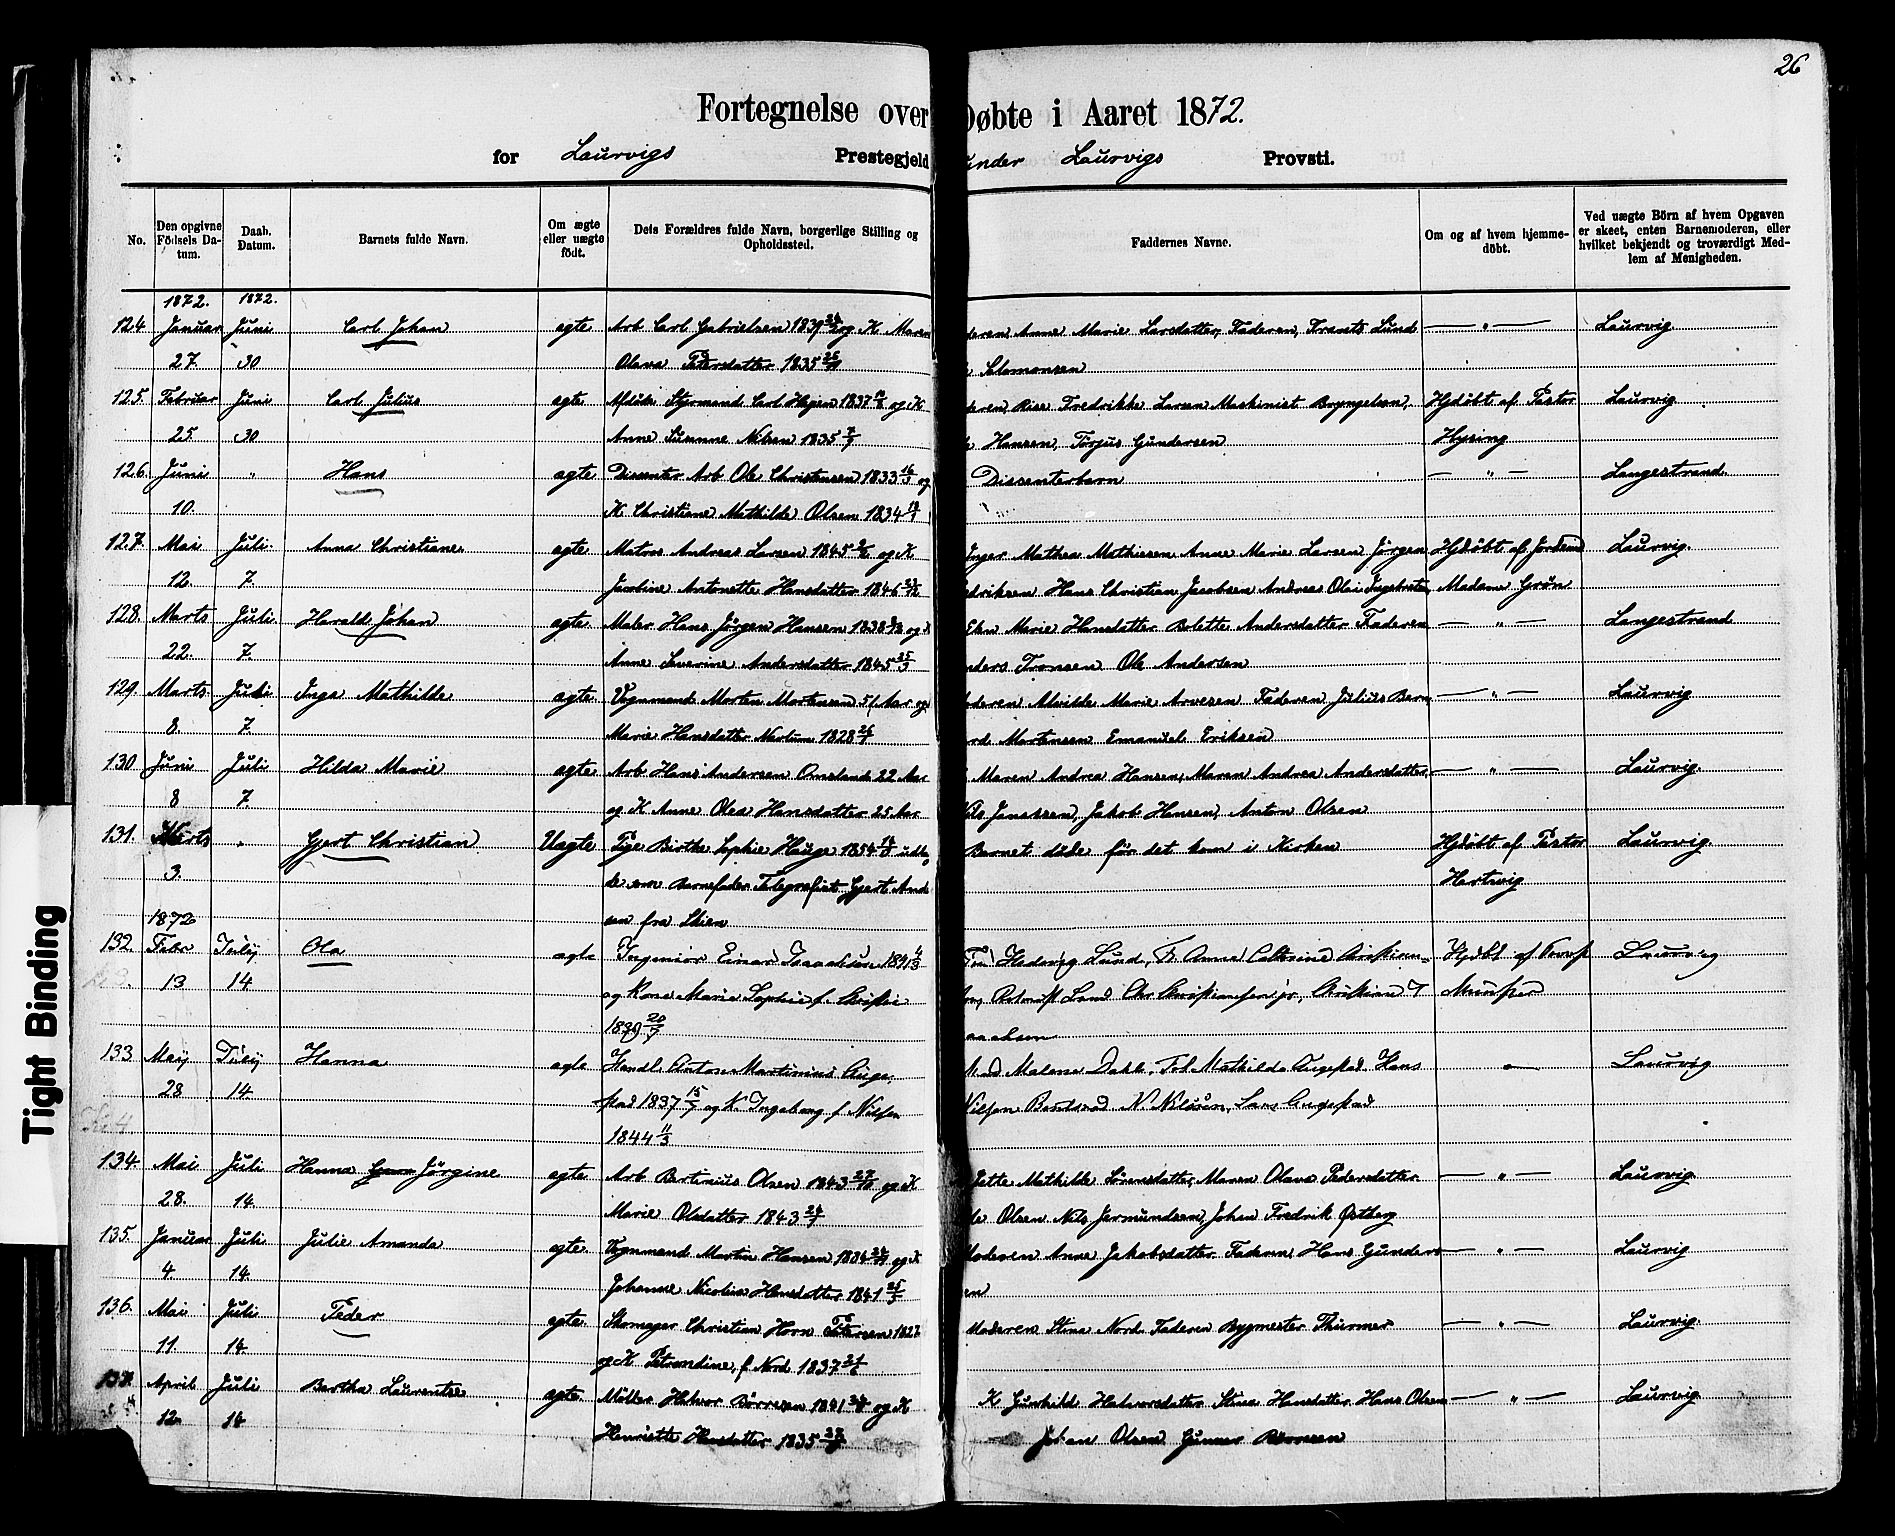 26
Fortegnelse over Døbte i Aaret 1872.
for Laurvigs Prestegjeld under Laurvigs Provsti.
No.
Den opgivne Födsels Datum.
Daab. Datum.
Barnets fulde Navn.
Om ægte eller uægte födt.
Dets Forældres fulde Navn, borgerlige Stilling og Opholdssted.
Faddernes Navne.
Om og af hvem hjemmedöbt.
Ved uægte Börn af hvem Opgaven er skeet, enten Barnemoderen, eller hvilket bekjendt og troværdigt Medlem af Menigheden.
1872. 1872.
124 Januar Juni Carl Johan ægte Arb Carl Gabrielsen 1839 og K Maren deren, Anne Marie Larsdatter, Faderen, Frants Lund — " — Laurvig
27. 30 Olava Petersdatter 1835 Salomonsen
125. Februar Juni Carl Julius ægte Styrmand Carl Hejen 1837 og K deren Fredrikke Larsen Maskinist Bryngelsen, Hjdöbt af Pastor Laurvig
25. 30 Anne Susanne Nilsen 1835 7/7 Hansen, Torjus Gundersen Hysing
126. Juni " Hans ægte Dissenter Arb Ole Christensen 1833 16/3 og Dissenterbarn — " — Langestrand.
10. K Christiane Mathilde Olsen 1834
127. Mai Juli Anna Christiane ægte Matros Andreas Larsen 1845 og K Inger Mathea Mathisen Anne Marie Larsen Jörgen Hjdöbt af Jordmd Laurvig.
12 7. Jacobine Antonette Hansdatter 1846 driksen Hans Christian Jacobsen Andreas Olai Madam Grøn
128. Marts Juli Harald Johan ægte Maler Hans Jörgen Hansen 1838 og K Elen Marie Hansdatter Bolette Andersdatter Faderen — " — Langestrand
22. 7. Anne Severine Andersdatter 1845 25/3 nders Tronsen Ole Andersen
129. Marts Juli Inga Mathilde ægte Vognmand Morten Mortensen 51 Aar og oderen Alvilde Marie Arvesen Faderen Julius Bern — " — Laurvig
8. 7 Marie Hansdatter 1828 ard Martensen Emanuel Eriksen
130 Juni Juli Hilda Marie ægte Arb Hans Andersen Omsland 22 Aar Maren Andrea Hansen, Maren Andrea Andersdatter — " — Laurvig.
8 7 og K Anne Olea Hansdatter 25 Aar Nils Janssen, Jakob Hansen, Anton Olsen
131. Marts " Gjert Christian Uægte Pige Birthe Sophie Hauge 1854 Barnet döde för det kom i Kirken Hjdöbt af Pastor Laurvig.
3. som Barnefader Telegrafist Gjert And Hartvig
1872 sen fra Skien
132. Febr July Ola ægte Ingeniør Einar Isaachsen Hedevig Lund, Fr Anna Cathrine Christian- Hjdbt af Laurvig
13 14 og Kone Marie Sophie f. Lund Chr Christiansen jr, Christian Munster
1839 20/7 aachsen
133 Maij July Hanna ægte Handl Anton Martinius Auge- Mad Malene Dahl, Mathilde Augestad Hans — Laurvig
28 14 stad 1837 15/7 og K Ingeborg f Nilsen Nilsen N Nilsen, Lars Augestad
1844 11/3
134 Mai Juli Hanna Jörgine ægte Arb Bertinius Olsen 1843 og K Jette Mathilde Sörensdatter, Maren Olava Pedersdatter — " — Laurvig.
28. 14. Marie Olsdatter 1843 Olsen Nils Jermundsen, Johan Fredrik Østberg
135. Januar Juli Julie Amanda ægte Vognmand Martin Hansen 1834 og K Moderen Anne Jakobsdatter Faderen Hans Gunders — " — Laurvig
4. 14. Johanne Nicoline Hansdatter 1841 25/3 en
136. Mai Juli Peder ægte Skomager Christian Horn Petersen 1827 Moderen Stina Nord Faderen Bygmester Thurmer — " — Laurvig.
11. 14 og K Petrondine, f Nord 1837
137. April Juli Bertha Laurentse ægte Möller Halvor Börresen 1841 og K K Gunhild Halvorsdatter Stina Hansdatter Hans Olsen — " — Laurvig
12 14 Henriette Hansdatter 1835 Johan Olsen Gunner Börresen
Tight Binding